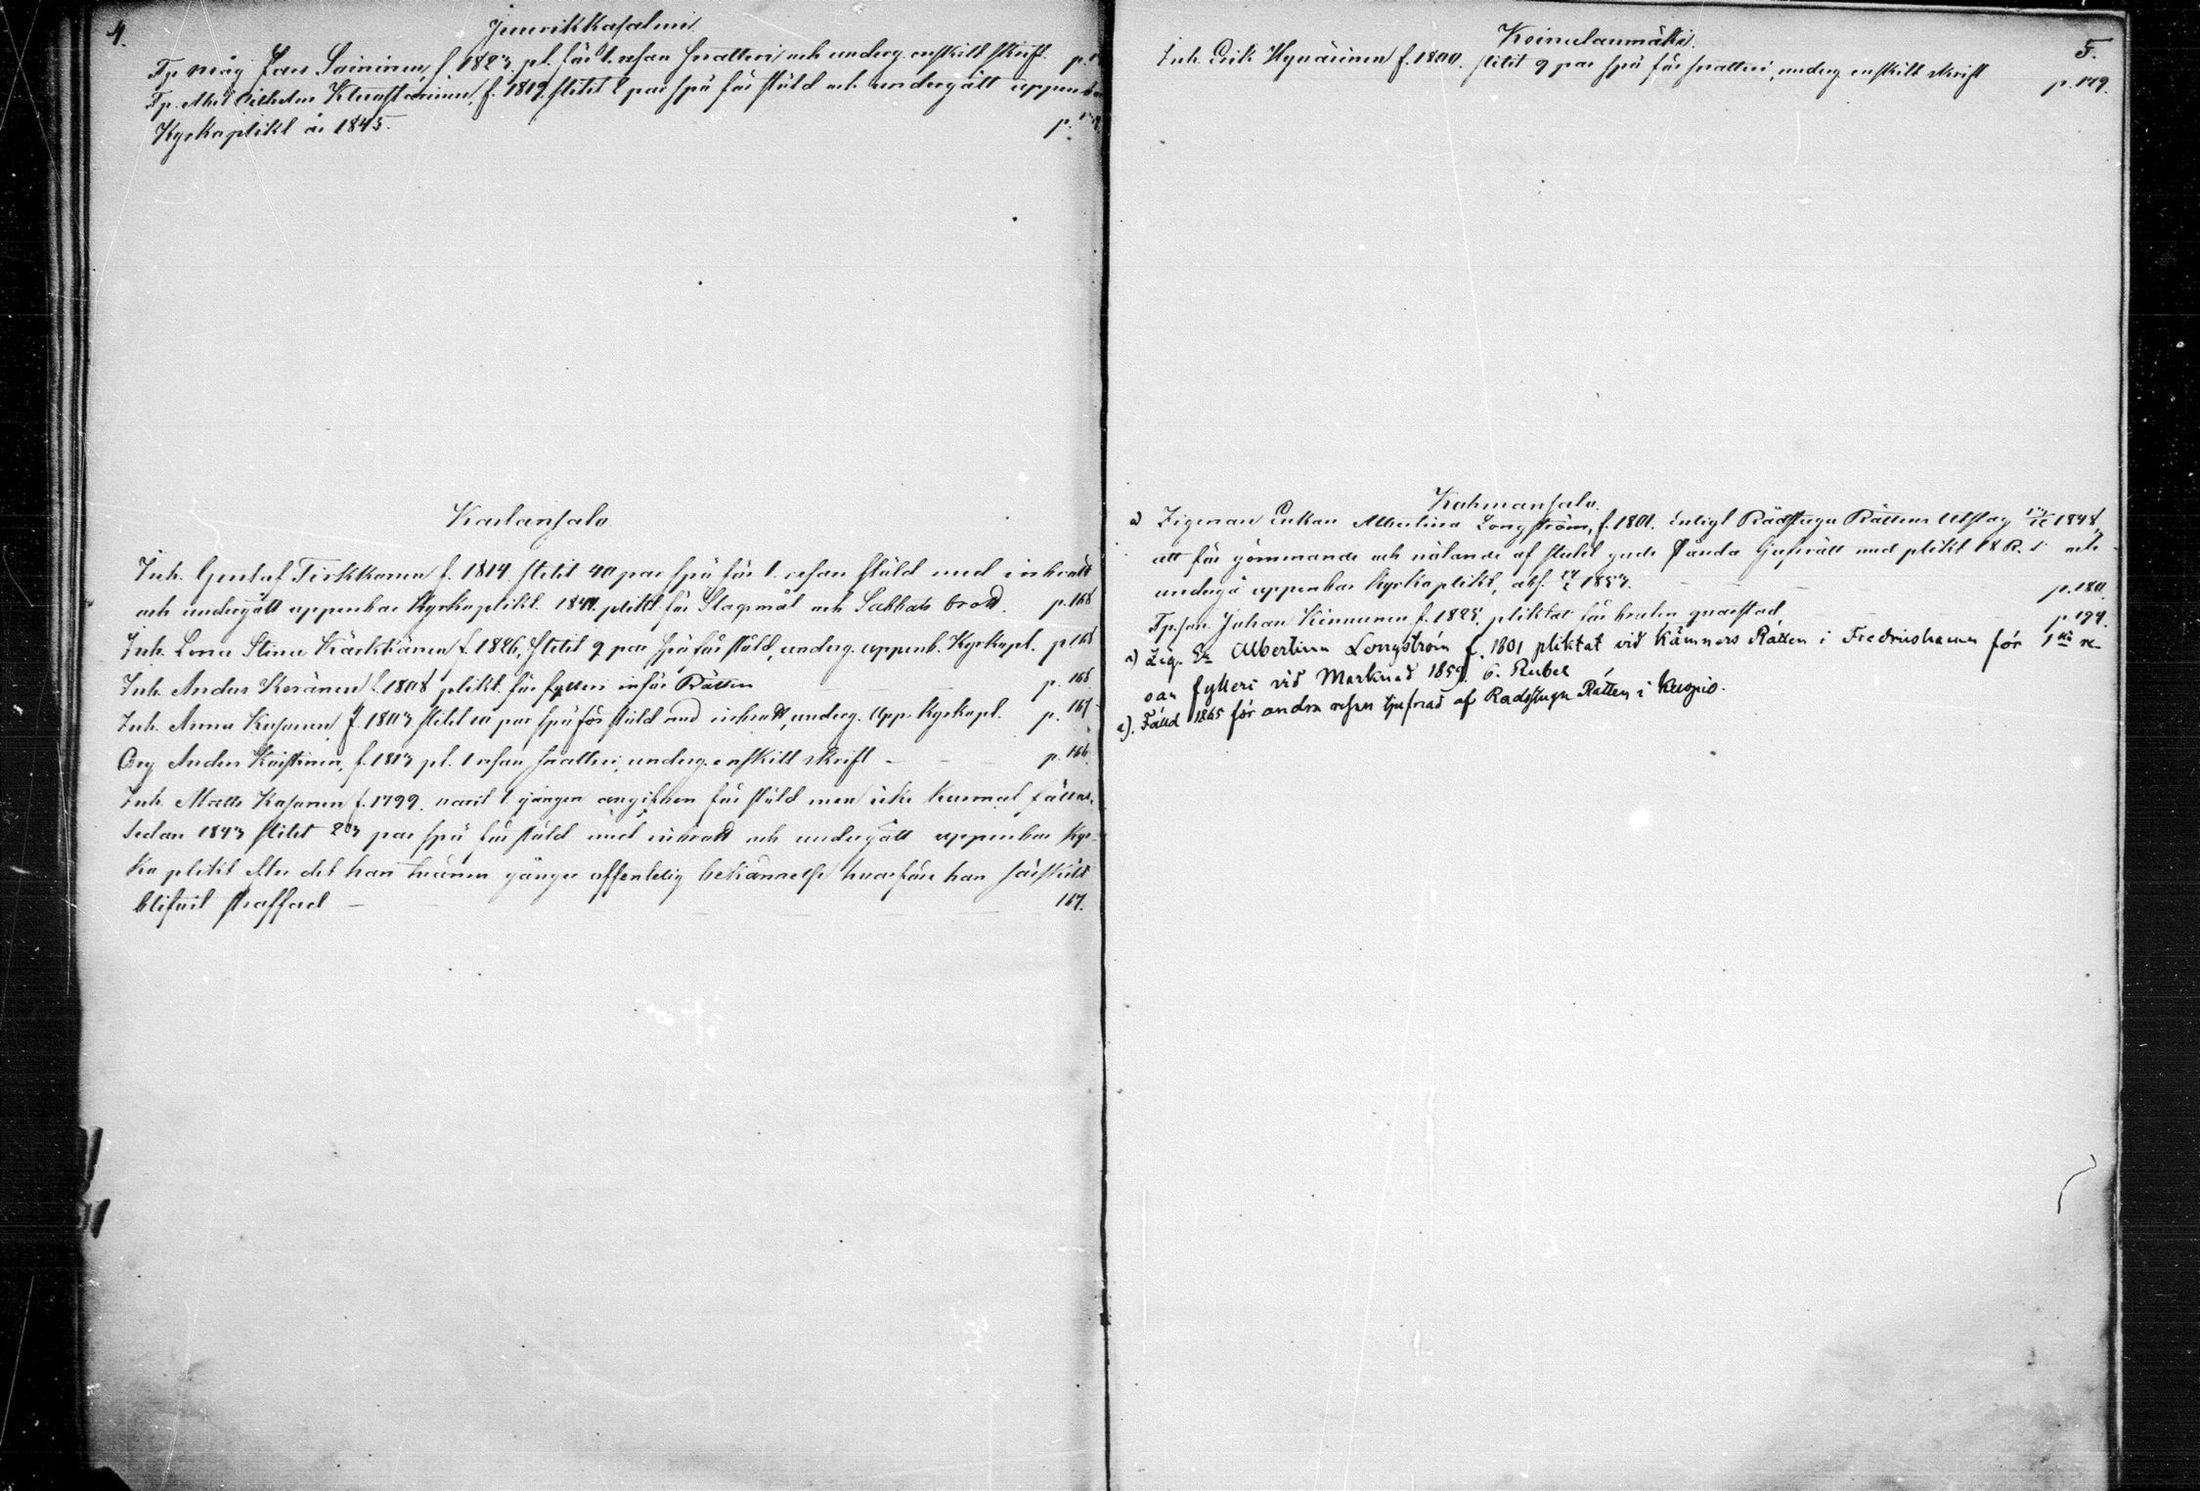 4.
Juurikkasalmi
Tp. måg Lars Saininen, f. 1823, pl. för 1. resan snatteri och underg. enskilt skrift. p.
Tp. Wilhelm f. 1819. slitit 8 par spö för stöld och undergått uppenbar
Kyrkoplikt år 1845. p.
Karlansalo
Inh. Gustaf Tirkkonen f. 1814 slitit 40 par spö för 1. resan stöld med inbrott
och undergått uppenbar Kyrkoplikt. 1841. plikt för Slagsmål och Sabbats brott. p. 168
Inh. Lena Stina Kärkkänen f. 1826, slitit 9 par spö för stöld, underg. uppenb. Kyrkopl. p 168
Inh. Anders Keränen f. 1808 plikt. för fylleri inför Rätten p. 166
Inh. Anna Kasanen f. 1803 slitit 10 par spö för stöld med inbrott, underg. upp. Kyrkopl. p. 167
Drg Anders f. 1813 pl. 1 resan snatteri, underg. enskilt skrift – p. 166.
Inh. Matts Kasanen f. 1799. varit 1 gången angifven för stöld men icke kunnat fällas,
sedan 1843 slitit 23 par spö för stöld med inbrott och undergått uppenbar Kyr-
ko plikt efter det han tvänne gånger offentelig bekännelse hvarföre han särskilt
blifvit straffad – 167.
Koinulanmäki
5.
Inh. Erik Hynärinen f. 1800. slitit 9 par spö för snatteri, underg. enskilt skrift p. 179.
Kahmansalo.
a) Zigenar Enkan Albertina Longström, f. 1801. Enligt Rådstugu Rättens Utslag 1848,
att för gömmande och nekande af stulit gods plikt 18 R. S. och
undergå uppenbar Kyrkoplikt, abs. 1853. p. 180.
Tp.son Johan Kinnunen f. 1825, pliktat för bruten quarstad p 194.
a) Zig. E: Albertina Longström f. 1801 pliktat vid Kämners Rätten i Fredrikshamn för 1sta re-
san fylleri vid Marknad 1859. 6. Rubel
a). Fälld 1865 för andra resan tjufnad af Rådstugu Rätten i Kuopio.